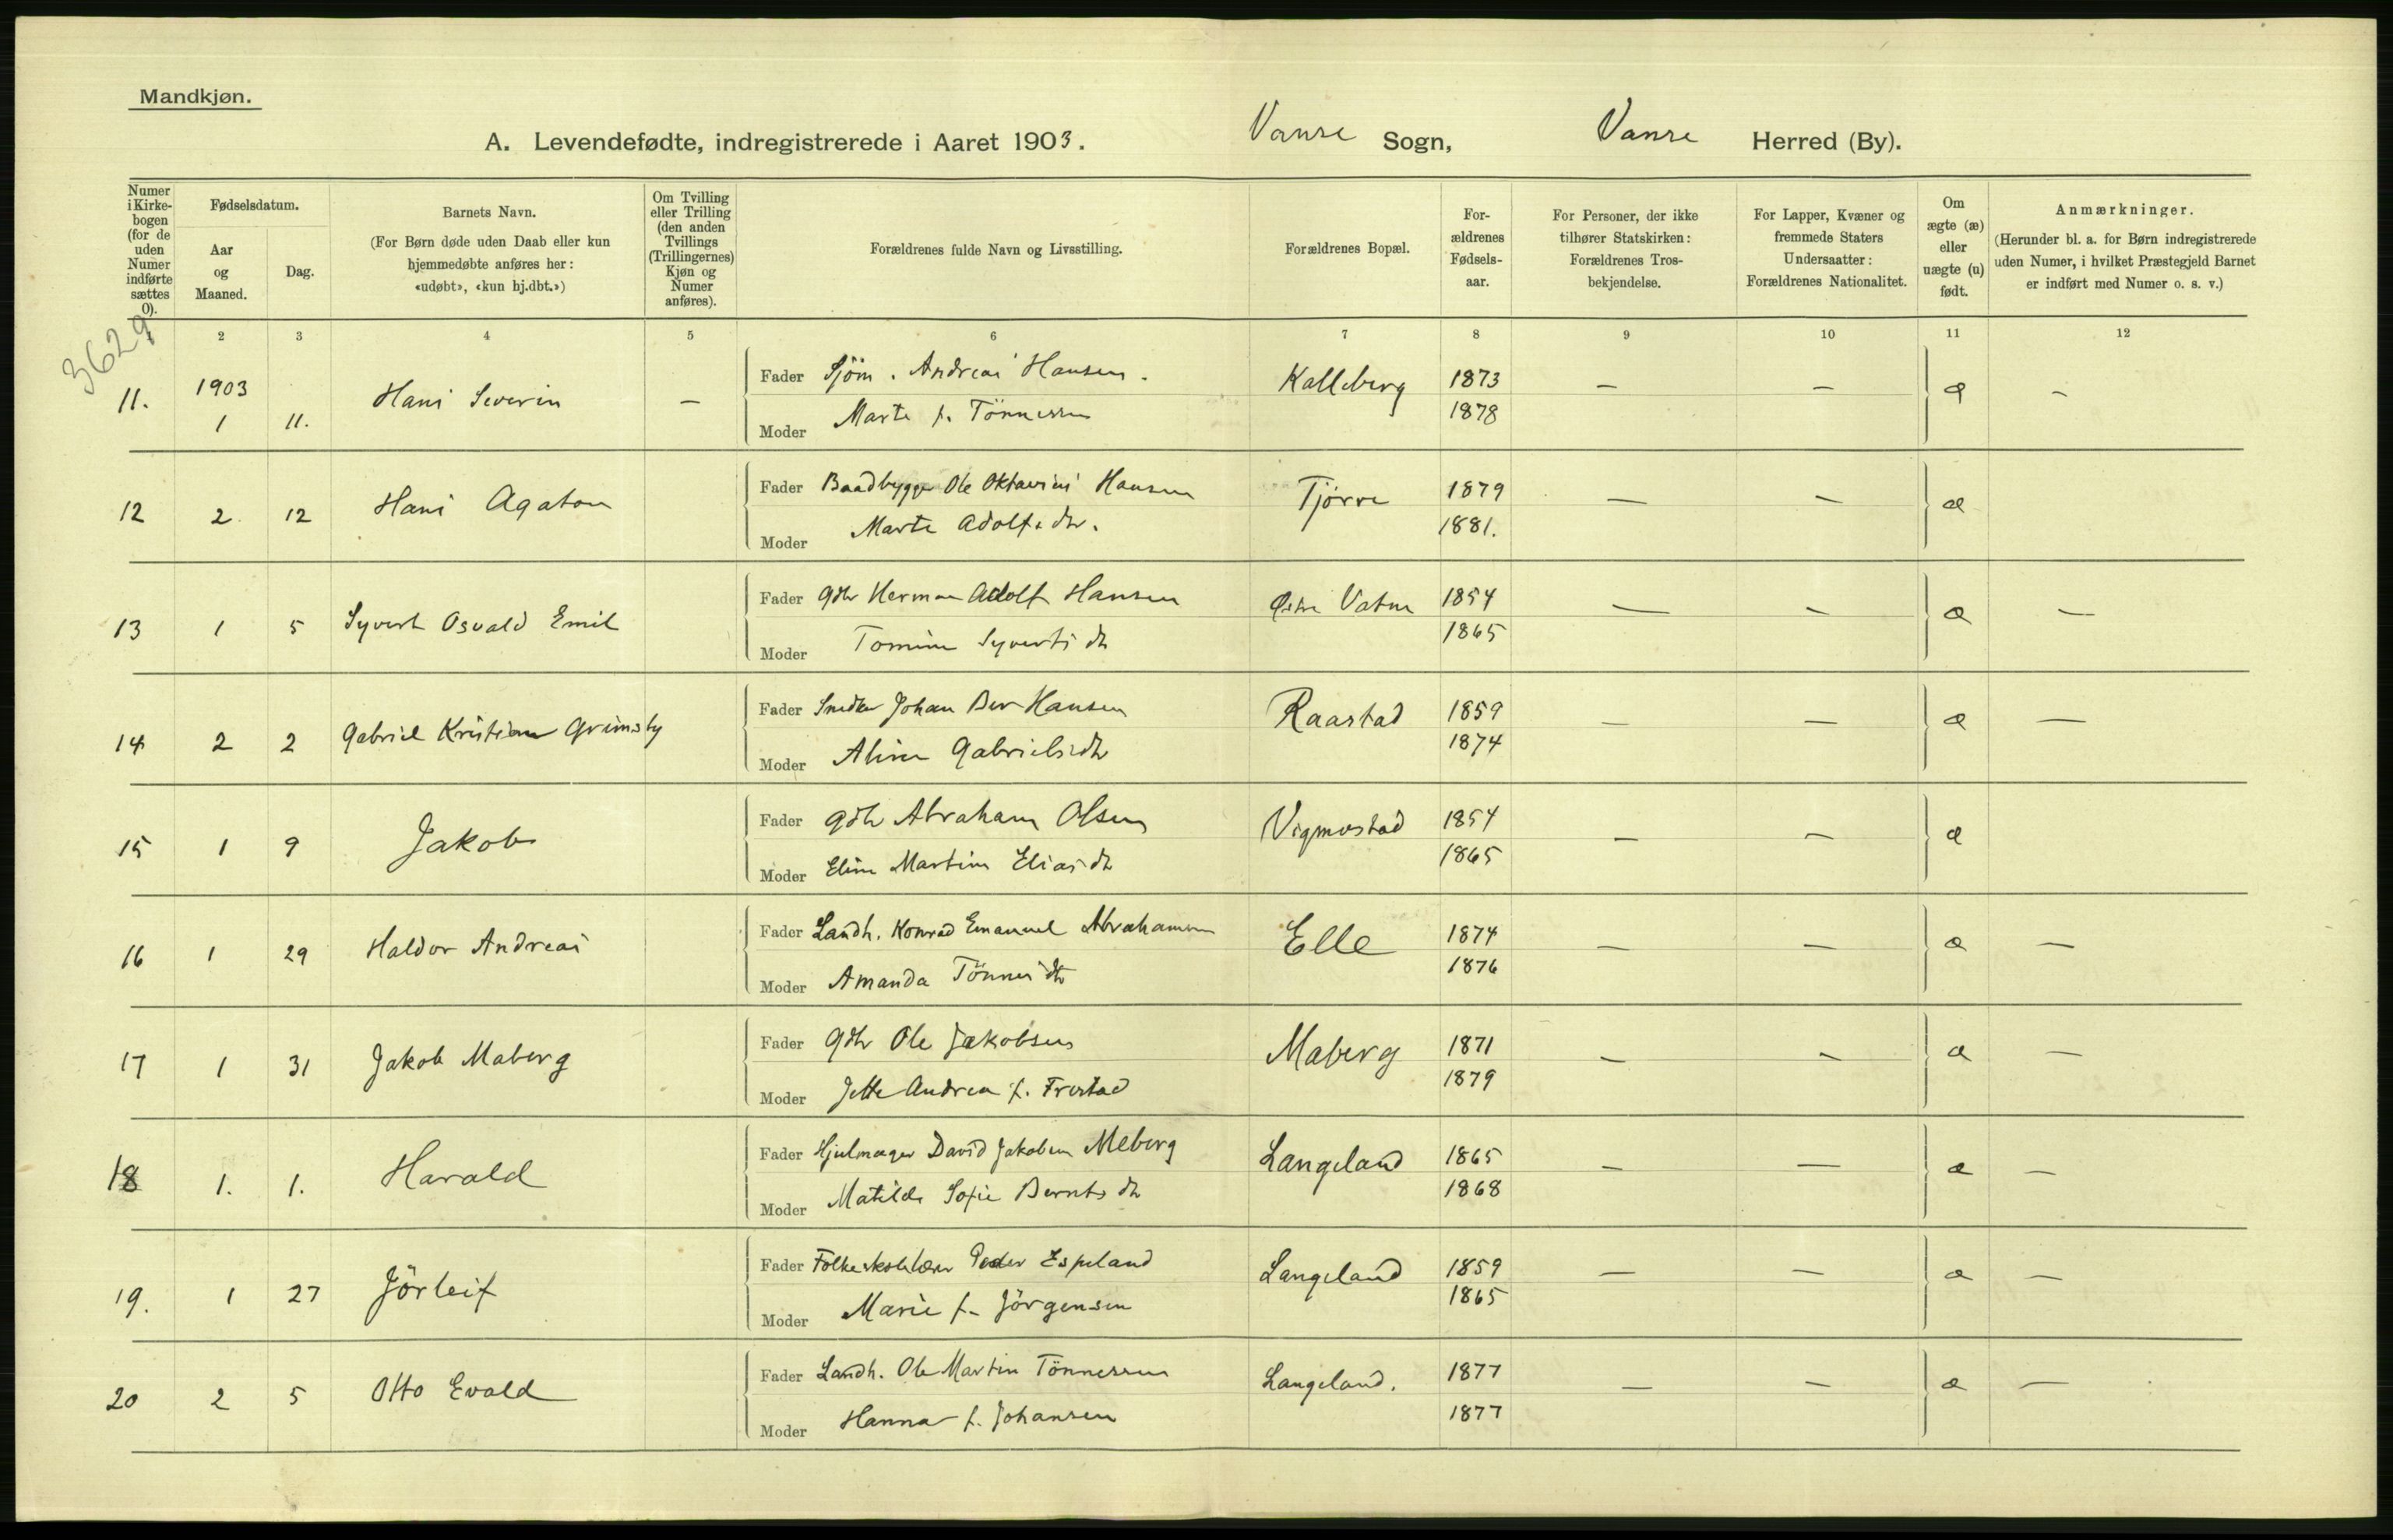 Mandkjøn.
A. Levendefødte, indregistrerede i Aaret 1903. Vanse Sogn, Vanse Herred (By).
Numer i Kirkebogen (for de uden Numer indførte sættes 0).
Fødselsdatum.
Aar og Maaned.
Dag.
Barnets Navn.
(For Børn døde uden Daab eller kun hjemmedøbte anføres her: «udøbt», «kun hj.dbt.»)
Om Tvilling eller Trilling (den anden Tvillings (Trillingernes) Kjøn og Numer anføres).
Forældrenes fulde Navn og Livsstilling.
Forældrenes Bopæl.
Forældrenes Fødselsaar.
For Personer, der ikke tilhører Statskirken: Forældrenes Trosbekjendelse.
For Lapper, Kvæner og fremmede Staters Undersaatter: Forældrenes Nationalitet.
Om ægte (æ) eller uægte (u) født.
Anmærkninger.
(Herunder bl. a. for Børn indregistrerede uden Numer, i hvilket Præstegjeld Barnet er indført med Numer o. s. v.)
3629
1 2 3 4 5 6 7 8 9 10 11 12
11. 1903 1 11. Hans Severin — Fader Sjöm. Andreas Hansen. Kalleberg 1873 — — æ —
Moder Marte f. Tönnessen 1878
12 2 12 Hans Agaton Fader Baadbygger Ole Oktavius Hansen Tjörve 1879 — — æ
Moder Marte Adolfsdtr. 1881.
13 1 5 Syvert Osvald Emil Fader Gdbr Herman Adolf Hansen Östre Vatne 1854 — — æ —
Moder Tomine Syvertsdtr 1865
14 2 2 Gabriel Kristian Grimsby Fader Snedker Johan Ber Hansen Raastad 1859 — — æ —
Moder Aline Gabrielsdtr 1874
15 1 9 Jakob Fader gdbr Abraham Olsen Vigmostad 1854 — — æ
Moder Eline Martine Eliasdtr 1865
16 1 29 Haldor Andreas Fader Landh. Konrad Emanuel Abrahamsen Elle 1874 — — æ —
Moder Amanda Tönnesdtr 1876
17 1 31 Jakob Maberg Fader Gdbr Ole Jakobsen Maberg 1871 — — æ —
Moder Jette Andrea f. Frestad 1879
18 1. 1. Harald Fader Hjulmager David Jakobsen Meberg Langeland 1865 — — æ —
Moder Matilde Sofie Berntsdtr 1868
19. 1 27 Jörleif Fader Folkeskolelærer Peder Espeland Langeland 1859 — — æ —
Moder Marie f. Jörgensen 1865
20 2 5 Otto Evald Fader Landh. Ole Martin Tönnessen Langeland. 1877 — — æ —
Moder Hanna f. Johansen 1877